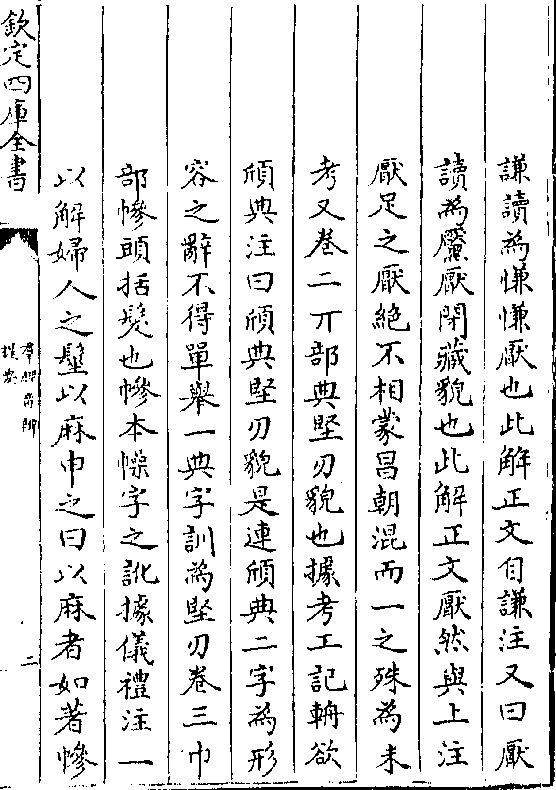 謙讀為慊慊厭也此解正文自謙注又曰厭
讀為黶厭閉藏貌也此解正文厭然與上注
厭足之厭絶不相蒙昌朝混而一之殊為未
考又卷二丌部典堅刃貌也據考工記輈欲
頎典注曰頎典堅刃貌是連頎典二字為形
容之辭不得單舉一典字訓為堅刃卷三巾
部幓頭括髮也幓本幧字之訛據儀禮注一
以解婦人之髽以麻申之曰以麻者如著幓
欽定四庫全書
羣經音辨
提要
二